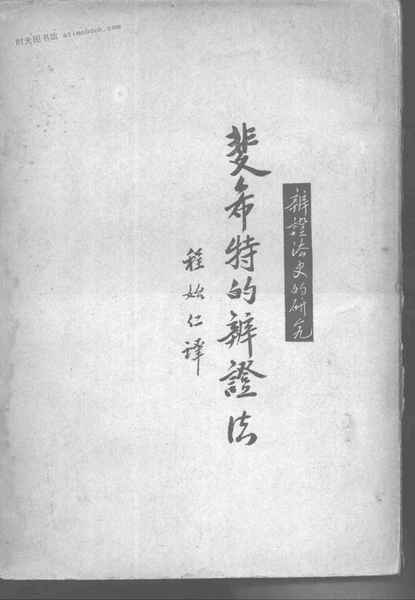 时光图书馆 atimebook.com
辩證法史的研究
斐希特的辩證法
程始仁譯